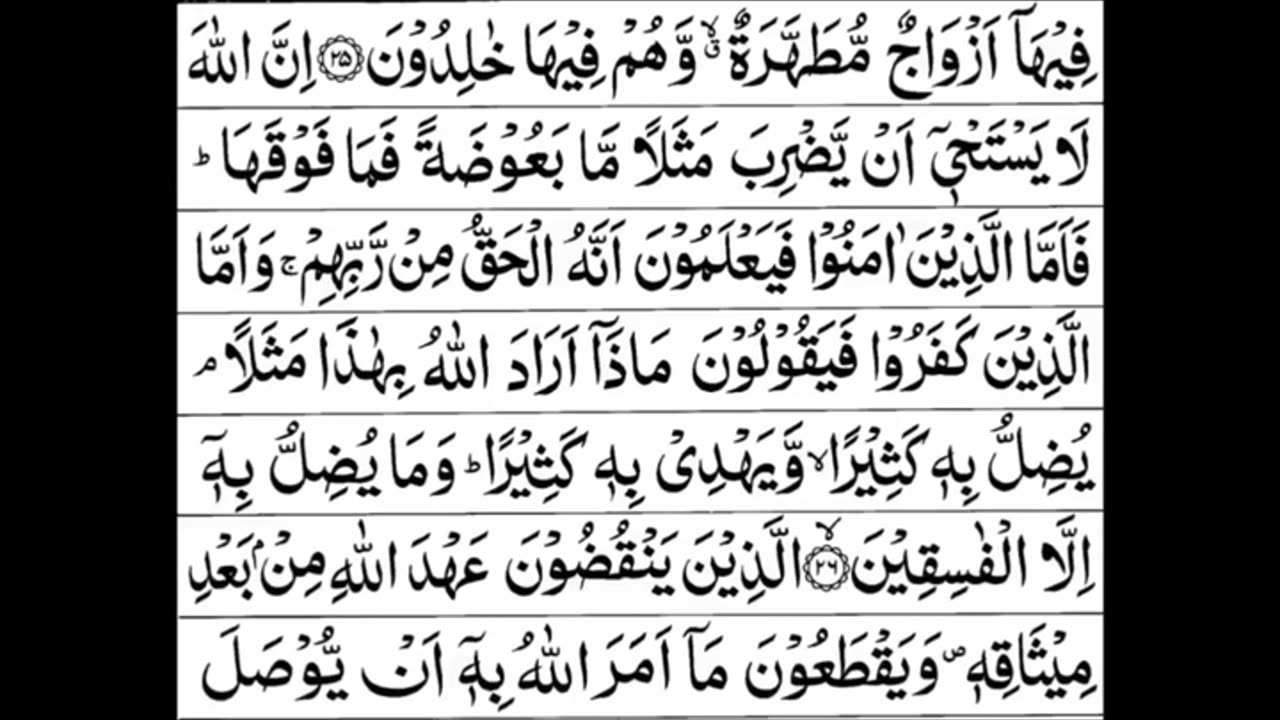 فِيْهَاۤ اَزْوَاجٌ مُّطَهَّرَةٌ ۙۗ وَّهُمْ فِيْهَا خٰلِدُوْنَ ﴿۲۵﴾ اِنَّ اللّٰهَ
لَا يَسْتَحْيٖۤ اَنْ يَّضْرِبَ مَثَلًا مَّا بَعُوْضَةً فَمَا فَوْقَهَا ؕ
فَاَمَّا الَّذِيْنَ اٰمَنُوْا فَيَعْلَمُوْنَ اَنَّهُ الْحَقُّ مِنْ رَّبِّهِمْ ۚ وَاَمَّا
الَّذِيْنَ كَفَرُوْا فَيَقُوْلُوْنَ مَاذَاۤ اَرَادَ اللّٰهُ بِهٰذَا مَثَلًا ۘ
يُضِلُّ بِهٖ كَثِيْرًا ۙ وَّيَهْدِيْ بِهٖ كَثِيْرًا ؕ وَمَا يُضِلُّ بِهٖۤ
اِلَّا الْفٰسِقِيْنَ ﴿۲۶﴾ ۙ الَّذِيْنَ يَنْقُضُوْنَ عَهْدَ اللّٰهِ مِنْۢ بَعْدِ
مِيْثَاقِهٖ ۪ وَيَقْطَعُوْنَ مَاۤ اَمَرَ اللّٰهُ بِهٖۤ اَنْ يُّوْصَلَ